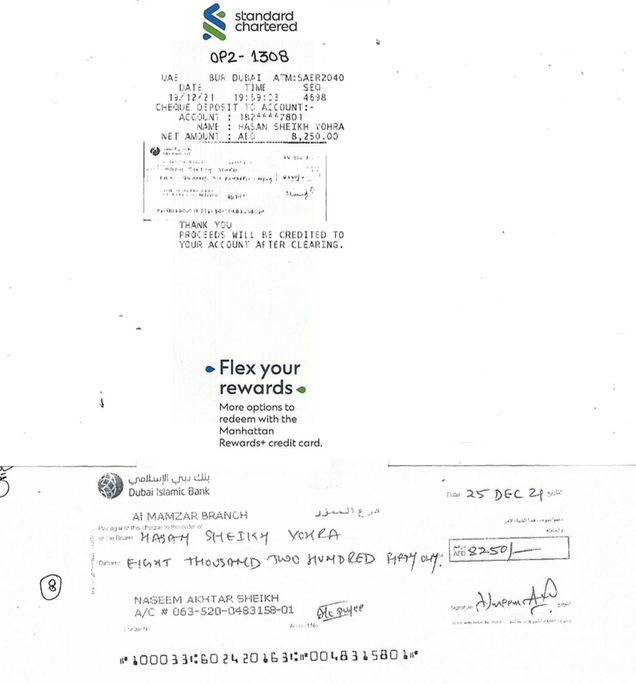 standard
chartered
OP2-1308
UAE BUR DUBAI ATM:SAER2040
DATE TIME SEQ
19/12/21 19:59:03 4698
CHEQUE DEPOSIT TO ACCOUNT:-
ACCOUNT : 182****7801
NAME : HASAN SHEIKH VOHRA
NET AMOUNT : AED 8,250.00
THANK YOU
PROCEEDS WILL BE CREDITED TO
YOUR ACCOUNT AFTER CLEARING.
Flex your
rewards
More options to
redeem with the
Manhattan
Rewards+ credit card.
بنك دبي الإسلامي
Dubai Islamic Bank
Date 25 DEC 21
Al MAMZAR BRANCH
فرع الممزر
Pay against this cheque to the order of
or the Bearer HASAN SHEIKH VOHRA
EIGHT THOUSAND TWO HUNDRED FIFTY ONLY.
AED 8250/-
8
NASEEM AKHTAR SHEIKH
A/C # 063-520-0483158-01
A/c payee
Signature
Cheque No.
Account No.
100033 602420163 0048315801